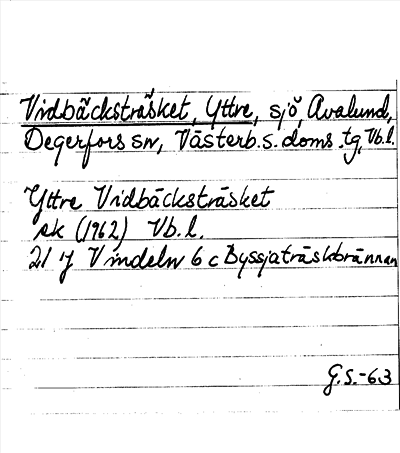 Vidbäcksträsket, Yttre, sjö, Avalund,
Degerfors sn, Västerb. s. doms. tg, Vb. l.
Yttre Vidbäcksträsket
ek (1962) Vb. l.
21 J Vindeln 6 c Byssjaträskbrännan
G.S.-63